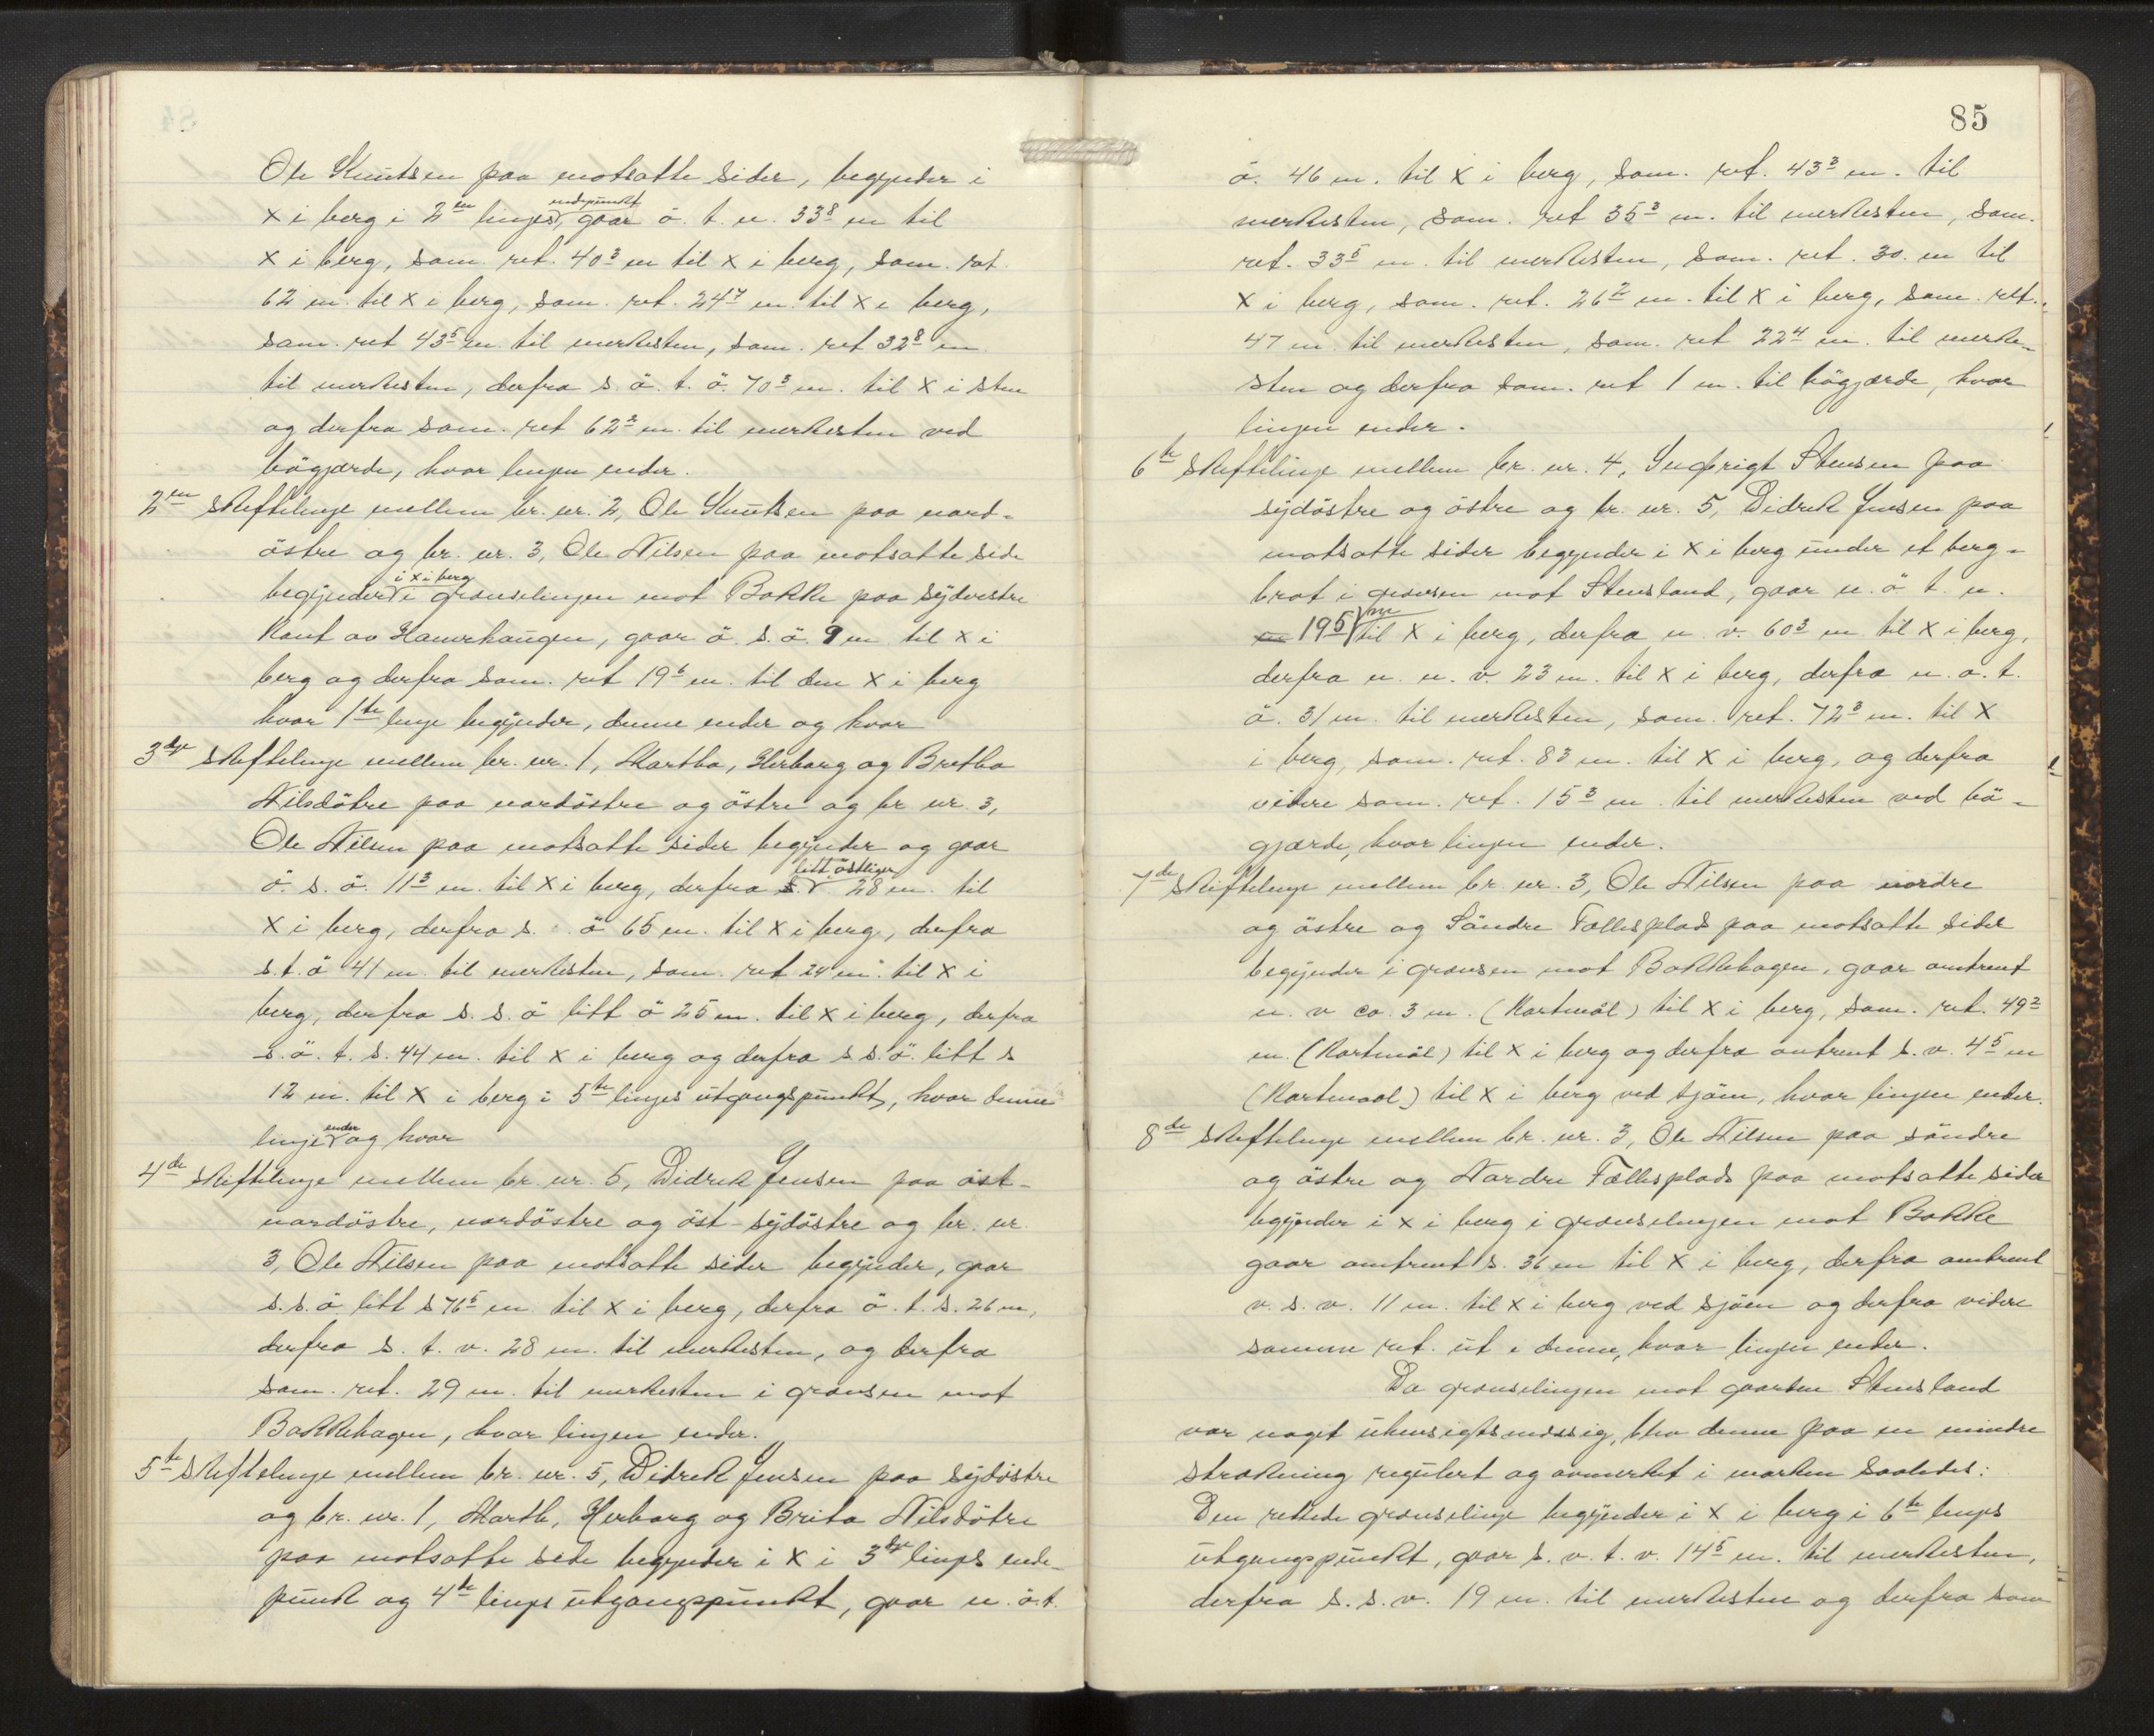 Ole Knutsen paa motsatte sider, begynder i
x i berg i 2en linjes endepunkt gaar ö. t. n. 33⁸ m til
x i berg, sam. ret. 40³ m til x i berg, sam. ret.
62 m. til x i berg, sam. ret. 24⁷ m. til x i berg,
sam. ret 43⁵ m. til merkesten, sam. ret 32⁸ m
til merkesten, derfra s. ö. t. ö. 70³ m. til x i sten
og derfra sam. ret 62² m. til merkesten ved
bögjærde, hvor linjen ender.
2en Skiftelinje mellem br. nr. 2, Ole Knutsen paa nord-
östre og br. nr. 3, Ole Nilsen paa motsatte side
begynder i x i berg i grænselinjen mot Bakke paa sydvestre
kant av Hamrhaugen, gaar ö. s. ö. 9 m til x i
berg og derfra sam. ret 19⁶ m. til den x i berg
hvor 1ste linje begynder, denne ender og hvor
3dje Skiftelinje mellem br. nr. 1, Martha, Herborg og Bretha
Nilsdötre paa nordöstre og östre og br nr. 3,
Ole Nilsen paa motsatte sider begynder og gaar
ö. s. ö. 11³ m. til x i berg, derfra s. litt östliger 28 m. til
x i berg, derfra s. ö 65 m. til x i berg, derfra
s. t. ö 41 m. til merkesten, sam. ret 24 m. til x i
berg, derfra s. s. ö litt ö 25 m. til x i berg, derfra
s. ö. t. s. 44 m. til x i berg og derfra s s. ö. litt s
12 m. til x i berg i 5te linjes utgangspunkt, hvor denne
linje ender og hvor
4de Skiftelinje mellem br. nr. 5, Didrek Jensen paa öst-
nordöstre, nordöstre og öst-sydöstre og br. nr.
3, Ole Nilsen paa motsatte sider begynder, gaar
s. s. ö litt s 76⁵ m. til x i berg, derfra ö. t. s. 26 m,
derfra s. t. v. 28 m. til merkesten, og derfra
sam. ret. 29 m. til merkesten i grænsen mot
Bakkehagen, hvor linjen ender.
5te Skiftelinje mellem br. nr. 5, Didrek Jensen paa sydöstre
og br. nr. 1, Marth, Herborg og Brita Nilsdötre
paa motsatte side begynder i x i 3dje linjes ende-
punk og 4de linjes utgangspunkt, gaar n. ö. t.
85
ö. 46 m. til x i berg, sam. ret. 43³ m. til
merkesten, sam. ret 35³ m. til merkesten, sam.
ret. 33⁵ m. til merkesten, sam. ret. 30. m til
x i berg, sam. ret. 26² m. til x i berg, sam. ret.
47 m. til merkesten, sam. ret 22⁴ m. til merke-
sten og derfra sam. ret 1 m. til bögjærde, hvor
linjen ender.
6te Skiftelinje mellem br. nr. 4, Ingbrigt Stensen paa
sydöstre og östre og br. nr. 5, Didrek Jensen paa
motsatte sider begynder i x i berg under et berg-
brot i grænsen mot Stensland, gaar n. ö t. n.
19⁵ m til x i berg, derfra n. v. 60³ m til x i berg,
derfra n. n. v. 23 m. til x i berg, derfra n. ö. t.
ö. 31 m. til merkesten, sam. ret. 72³ m. til x
i berg, sam. ret. 83 m. til x i berg, og derfra
videre sam. ret. 15³ m. til merkesten ved bö-
gjærde, hvor linjen ender.
7de Skiftelinje mellem br. nr. 3, Ole Nilsen paa nordre
og östre og Söndre Fællesplads paa motsatte sider
begynder i grænsen mot Bakkehagen, gaar omtrent
n. v ca. 3 m. (Kartmål) til x i berg, sam. ret. 49²
m. (Kartmål) til x i berg og derfra omtrent s. v. 4⁵ m
(Kartmaal) til x i berg ved sjöen, hvor linjen ender.
8de Skiftelinje mellem br. nr. 3, Ole Nilsen paa söndre
og östre og Nordre Fællesplads paa motsatte sider
begynder i x i berg i grænselinjen mot Bakke
gaar omtrent s. 36 m til x i berg, derfra omtrent
v. s. v. 11 m. til x i berg ved sjöen og derfra videre
samme ret. ut i denne, hvor linjen ender.
Da grænselinjen mot gaarden Stensland
var noget uhensigtsmæssig, blev denne paa en mindre
strækning regulert og avmerket i marken saaledes:
Den rettede grænselinje begynder i x i berg i 6te linjes
utgangspunkt, gaar s. v. t. v. 14⁵ m. til merkesten,
derfra s. s. v. 19 m. til merkesten og derfra sam